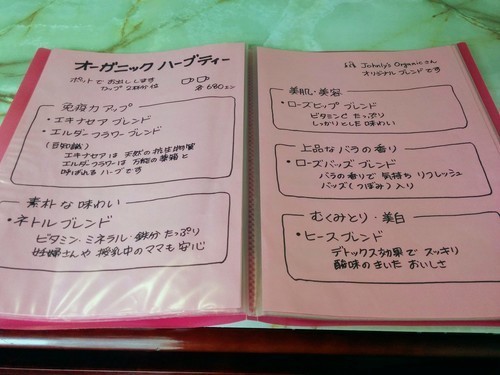 オーガニック ハーブティー
ポットで お出しします
カップ 2杯分位
各 680エン
免疫力アップ
・エキナセア ブレンド
・エルダーフラワー ブレンド
(豆知識)
エキナセアは 天然の 抗生物質
エルダーフラワーは 万能の 薬箱と
呼ばれる ハーブです
素朴な味わい
・ネトルブレンド
ビタミン・ミネラル・鉄分 たっぷり
妊婦さんや 授乳中のママも 安心
Johnly's Organicさん
オリジナル ブレンド です
美肌・美容
・ローズヒップ ブレンド
ビタミンC たっぷり
しっかりとした 味わい
上品な バラの 香り
・ローズバッズ ブレンド
バラの香りで 気持ち リフレッシュ
バッズ(つぼみ)入り
むくみとり・美白
・ヒースブレンド
デトックス効果で スッキリ
酸味のきいた おいしさ